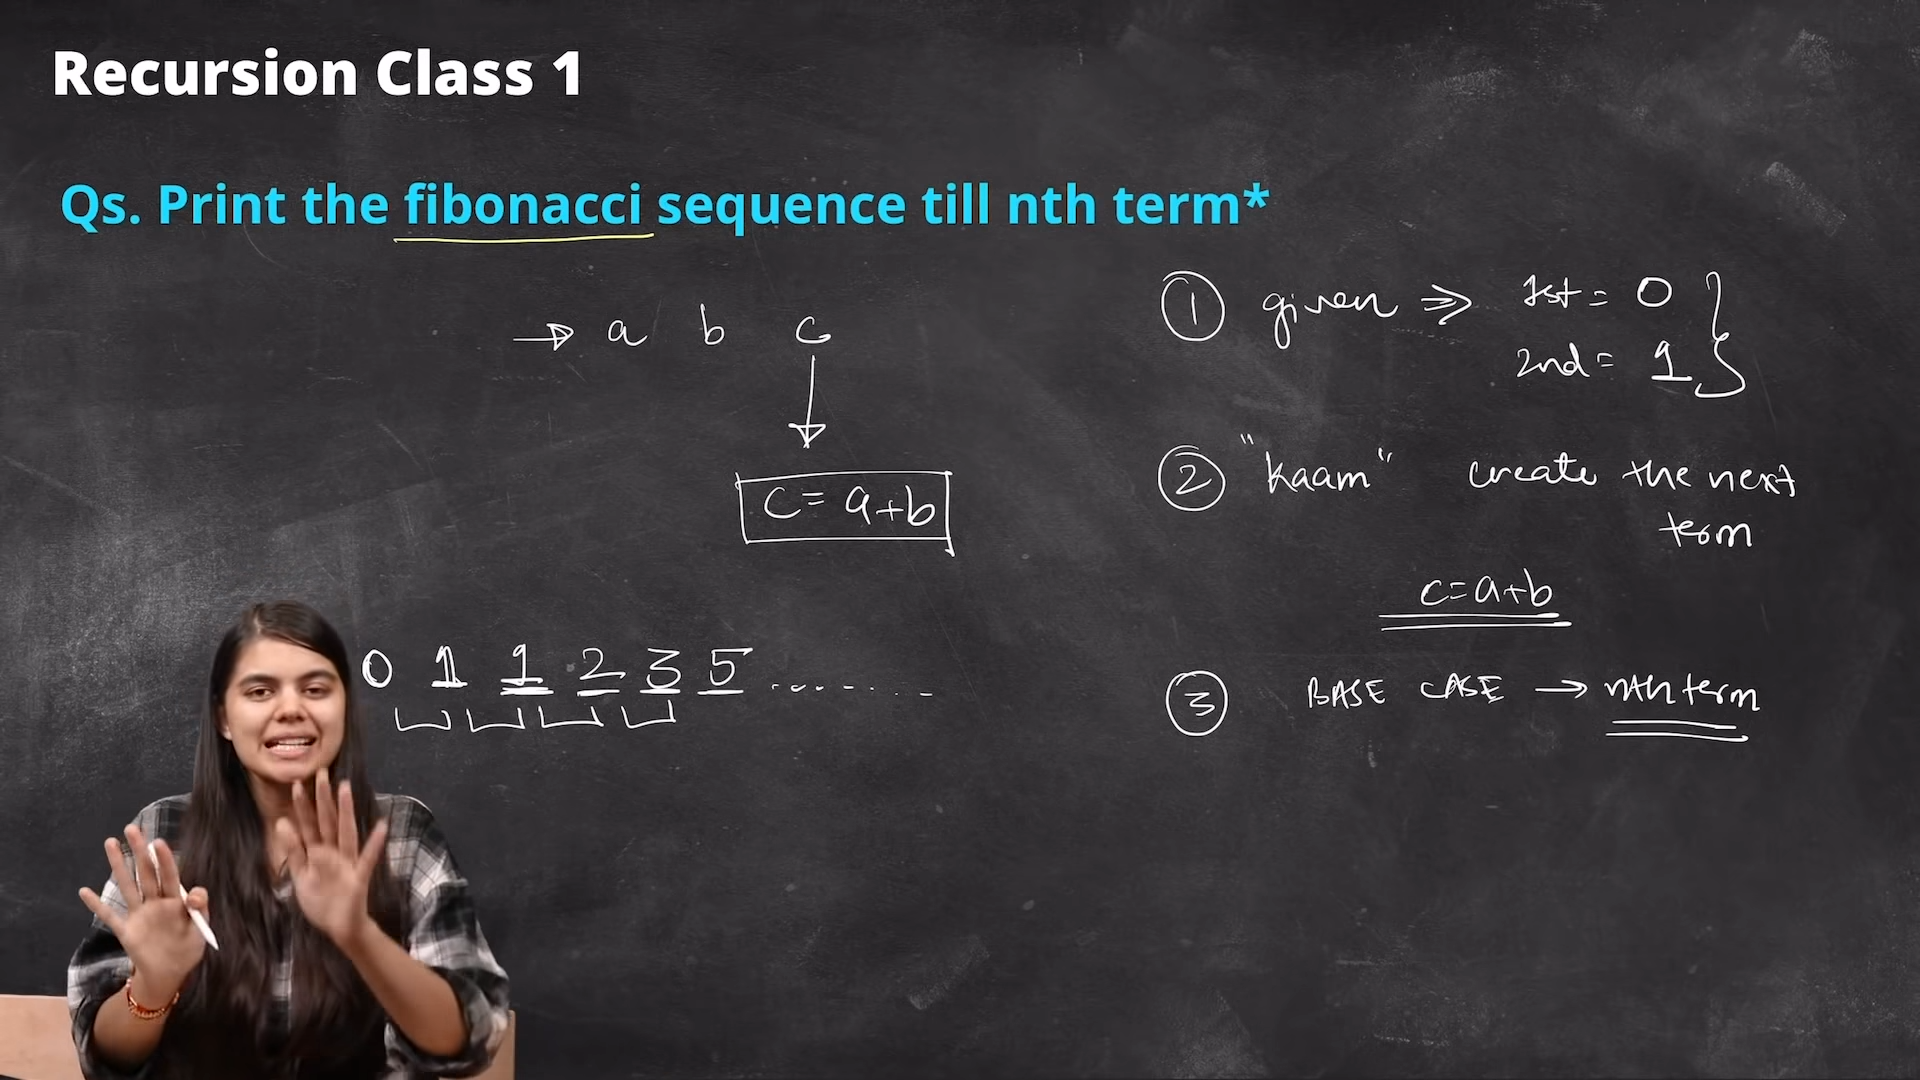 Recursion Class 1
Qs. Print the fibonacci sequence till nth term*
→ a b c
c = a+b
0 1 1 2 3 5 ........
① given ⇒ 1st = 0
2nd = 1
② "kaam" create the next
term
c=a+b
③ BASE CASE → nth term